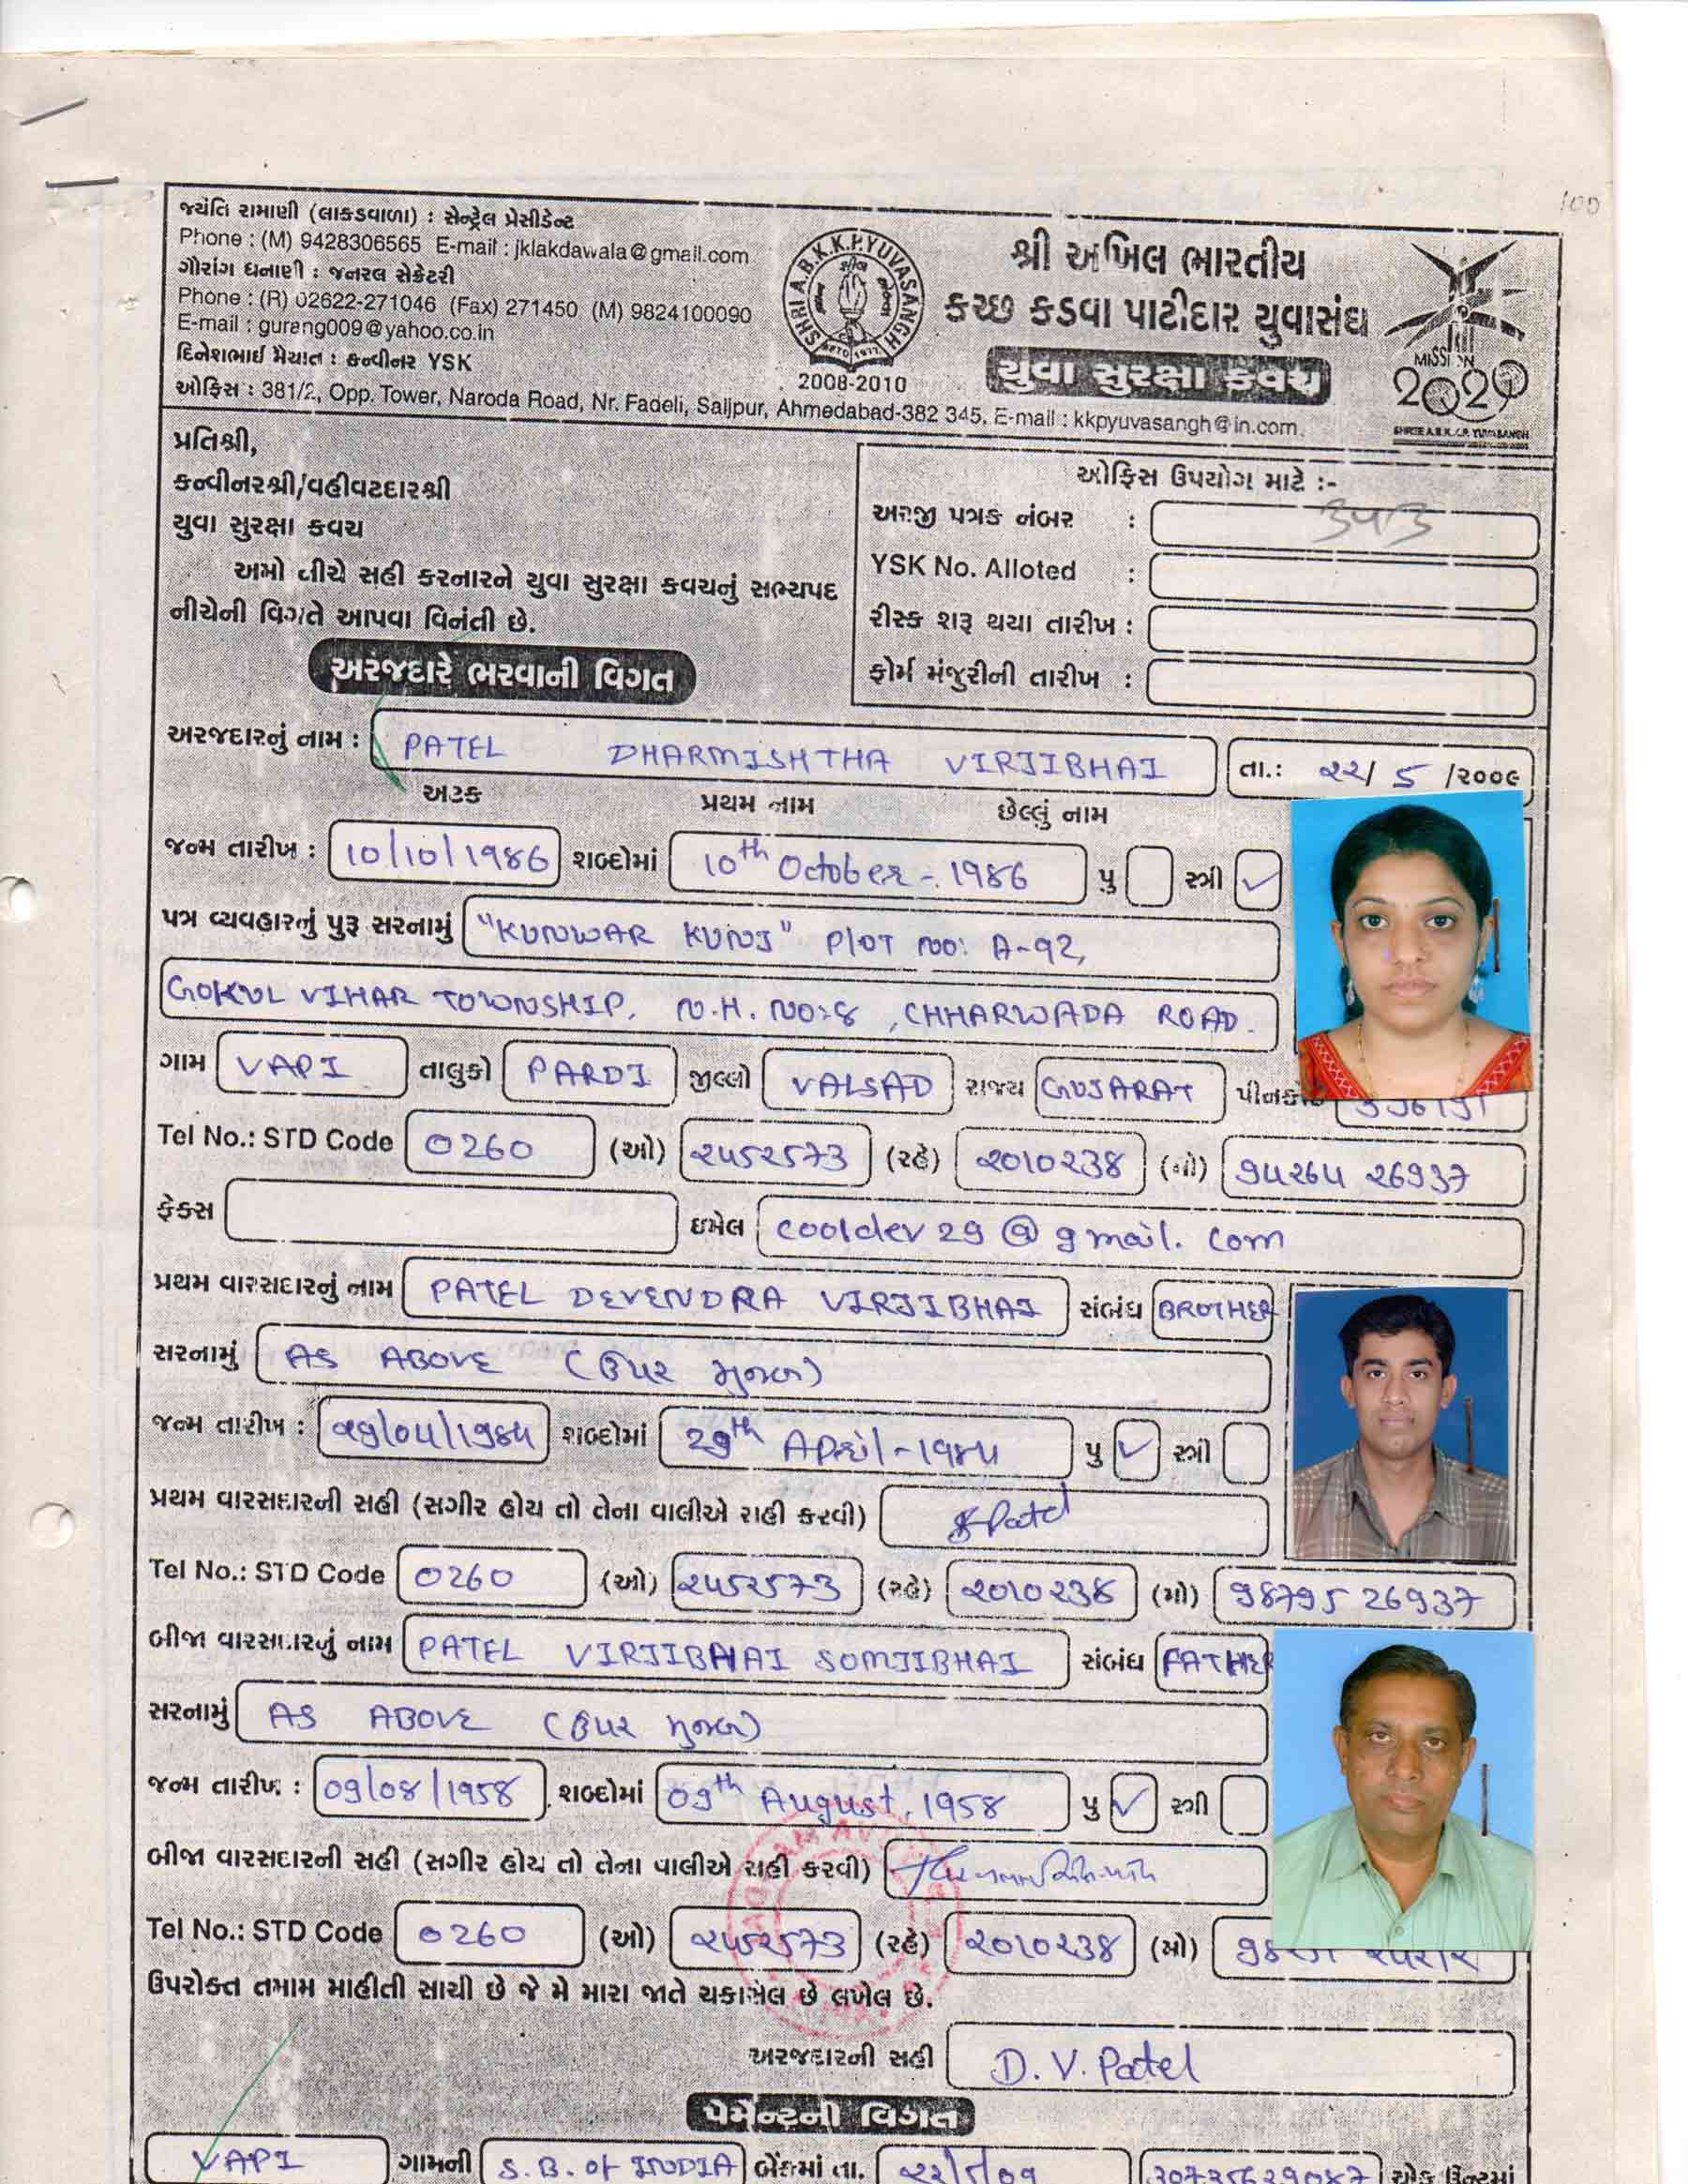 100
જયંતિ રામાણી (લાકડાવાળા) : સેન્ટ્રેલ પ્રેસીડેન્ટ
Phone : (M) 9428306565 E-mail : jklakdawala@gmail.com
ગૌરાંગ ધનાણી : જનરલ સેક્રેટરી
Phone : (R) 02622-271046 (Fax) 271450 (M) 9824100090
E-mail : gurang009@yahoo.co.in
દિનેશભાઈ મૈયાત : કન્વીનર YSK
ઓફિસ : 381/2, Opp. Tower, Naroda Road, Nr. Fadeli, Saijpur, Ahmedabad-382 345, E-mail : kkpyuvasangh@in.com.
SHRI A.B.K.K.P.YUVASANGH
2008-2010
શ્રી અખિલ ભારતીય
કચ્છ કડવા પાટીદાર યુવાસંઘ
યુવા સુરક્ષા કવચ
MISSION
SHREE A.B.K.K.P. YUVASANGH
પ્રતિશ્રી,
કન્વીનરશ્રી/વહીવટદારશ્રી
યુવા સુરક્ષા કવચ
અમો નીચે સહી કરનારને યુવા સુરક્ષા કવચનું સભ્યપદ
નીચેની વિગતે આપવા વિનંતી છે.
ઓફિસ ઉપયોગ માટે :-
અરજી પત્રક નંબર : ૩૫૩
YSK No. Alloted :
રીસ્ક શરૂ થયા તારીખ :
ફોર્મ મંજુરીની તારીખ :
અરજદારે ભરવાની વિગત
અરજદારનું નામ : PATEL DHARMISHTHA VIRJIBHAI તા.: ૨૨/ 5 /૨૦૦૯
અટક પ્રથમ નામ છેલ્લું નામ
જન્મ તારીખ : 10/10/1986 શબ્દોમાં 10th October - 1986 પુ સ્ત્રી ✓
પત્ર વ્યવહારનું પુરૂ સરનામું "KUNWAR KUNJ" PLOT NO: A-92,
GOKUL VIHAR TOWNSHIP, N.H. NO:8, CHHARWADA ROAD.
ગામ VAPI તાલુકો PARDI જીલ્લો VALSAD રાજ્ય GUJARAT
Tel No.: STD Code 0260 (ઓ) ૨૫૨૨૫73 (રહે) ૨010૨38 (મો) 94264 26937
ફેક્સ ઇમેલ cooldev29@gmail.com
પ્રથમ વારસદારનું નામ PATEL DEVENDRA VIRJIBHAI સંબંધ BROTHER
સરનામું AS ABOVE (ઉપર મુજબ)
જન્મ તારીખ : ૨9/04/1984 શબ્દોમાં 29th April-1984 પુ ✓ સ્ત્રી
પ્રથમ વારસદારની સહી (સગીર હોય તો તેના વાલીએ સહી કરવી)
Tel No.: STD Code 0260 (ઓ) ૨૫૨૨૫73 (રહે) ૨010૨38 (મો) 98795 26937
બીજા વારસદારનું નામ PATEL VIRJIBHAI SOMJIBHAI સંબંધ FATHER
સરનામું AS ABOVE (ઉપર મુજબ)
જન્મ તારીખ : 09/08/1958 શબ્દોમાં 09th August, 1958 પુ ✓ સ્ત્રી
બીજા વારસદારની સહી (સગીર હોય તો તેના વાલીએ સહી કરવી)
Tel No.: STD Code 0260 (ઓ) ૨૫૨૨૫73 (રહે) ૨010૨38 (મો)
ઉપરોક્ત તમામ માહીતી સાચી છે જે મે મારા જાતે ચકાસેલ છે લખેલ છે.
અરજદારની સહી D. V. Patel
પેમેન્ટની વિગત
VAPI ગામની S.B. of INDIA બેંકમાં તા.